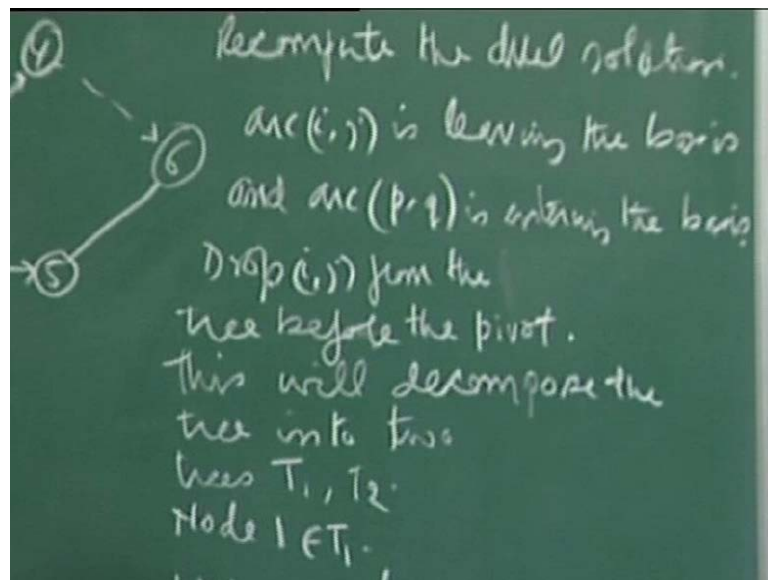 4
Recompute the dual solution.
arc(i,j) is leaving the basis
6
and arc (p,q) is entering the basis
5
Drop (i,j) from the
tree before the pivot.
This will decompose the
tree into two
trees T₁, T₂.
Node 1 ∈ T₁.